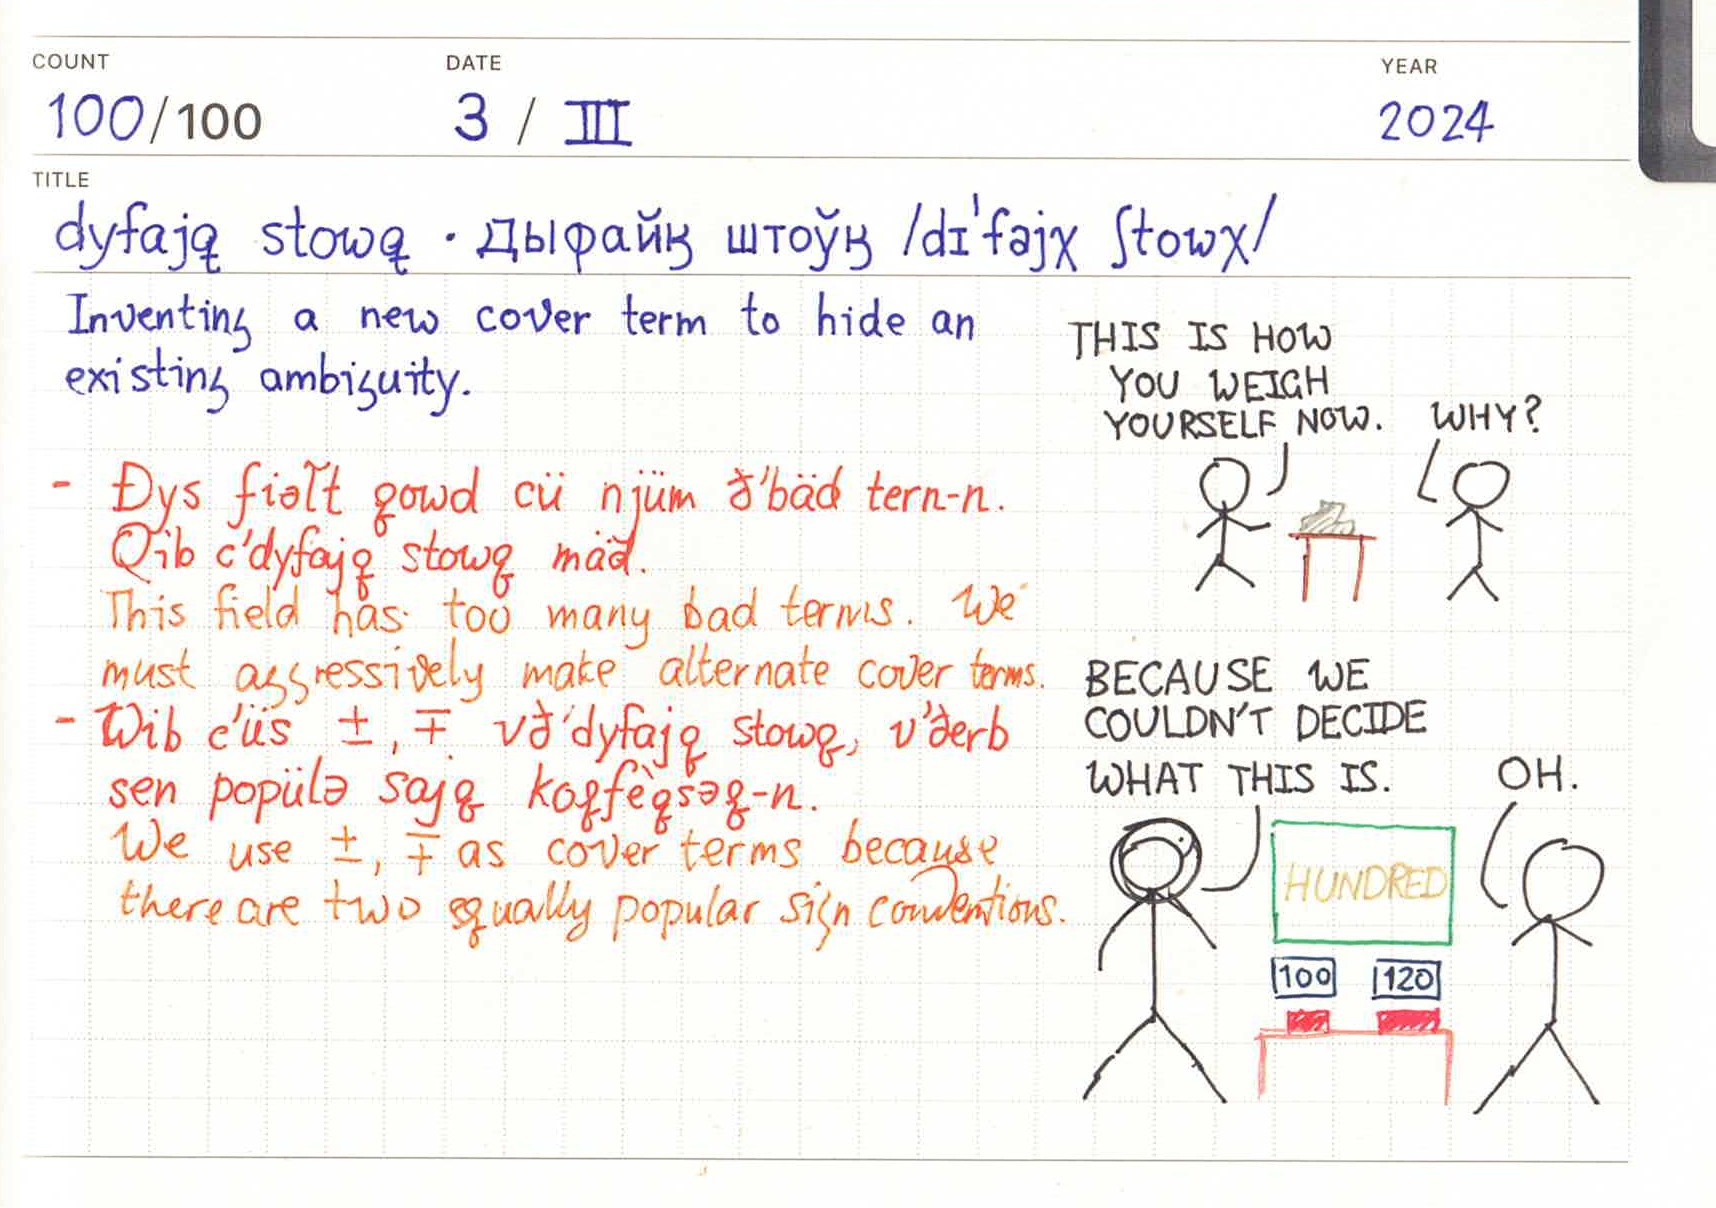 COUNT
DATE
YEAR
100/100
3 / III
2024
TITLE
dyfajq stowq · Дыфайӄ штоўӄ /dɪˈfəjχ ʃtowχ/
Inventing a new cover term to hide an
existing ambiguity.
- Ðys fiəl̃t qowd cü njüm ð'bäd tern-n.
Qib c'dyfajq stowq mäd.
This field has too many bad terms. We
must aggressively make alternate cover terms.
- Wib c'üs ±, ∓ vð'dyfajq stowq, v'ðerb
sen popülə sajq koqfèqsəq-n.
We use ±, ∓ as cover terms because
there are two equally popular sign conventions.
THIS IS HOW
YOU WEIGH
YOURSELF NOW.
WHY?
BECAUSE WE
COULDN'T DECIDE
WHAT THIS IS.
OH.
HUNDRED
100
120